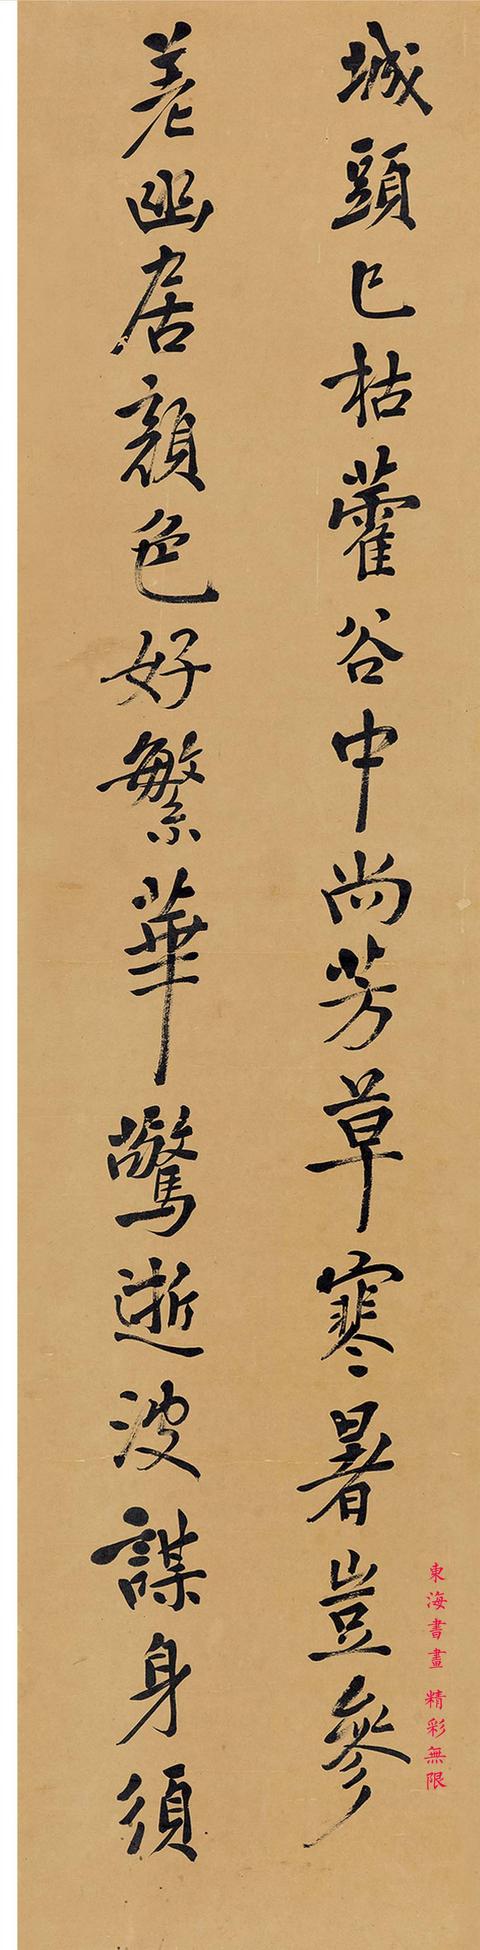 城頭已枯藿谷中尚芳草寒暑豈參
差幽居顏色好繁華驚逝波謀身須
東海書畫 精彩無限